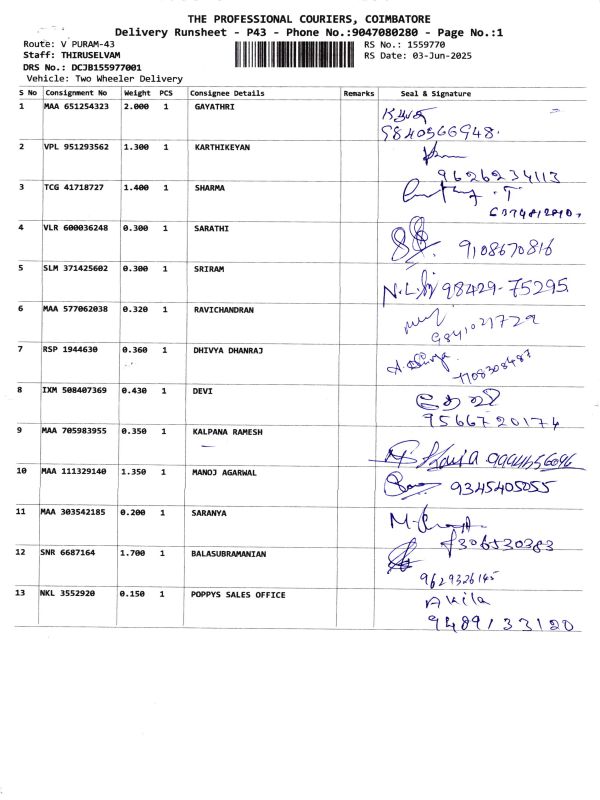 THE PROFESSIONAL COURIERS, COIMBATORE
Delivery Runsheet - P43 - Phone No.:9047080280 - Page No.:1
Route: V PURAM-43 RS No.: 1559770
Staff: THIRUSELVAM RS Date: 03-Jun-2025
DRS No.: DCJB155977001
Vehicle: Two Wheeler Delivery
S No Consignment No Weight PCS Consignee Details Remarks Seal & Signature
1 MAA 651254323 2.000 1 GAYATHRI
9840566948.
2 VPL 951293562 1.300 1 KARTHIKEYAN
9626234113
3 TCG 41718727 1.400 1 SHARMA
4 VLR 600036248 0.300 1 SARATHI
9108670816
5 SLM 371425602 0.300 1 SRIRAM
98429-75295
6 MAA 577062038 0.320 1 RAVICHANDRAN
9841021729
7 RSP 1944630 0.360 1 DHIVYA DHANRAJ
8 IXM 508407369 0.430 1 DEVI
தேவி
9566720174
9 MAA 705983955 0.350 1 KALPANA RAMESH
10 MAA 111329140 1.350 1 MANOJ AGARWAL
9345405055
11 MAA 303542185 0.200 1 SARANYA
12 SNR 6687164 1.700 1 BALASUBRAMANIAN
9629326145
13 NKL 3552920 0.150 1 POPPYS SALES OFFICE
Akila
9489133120